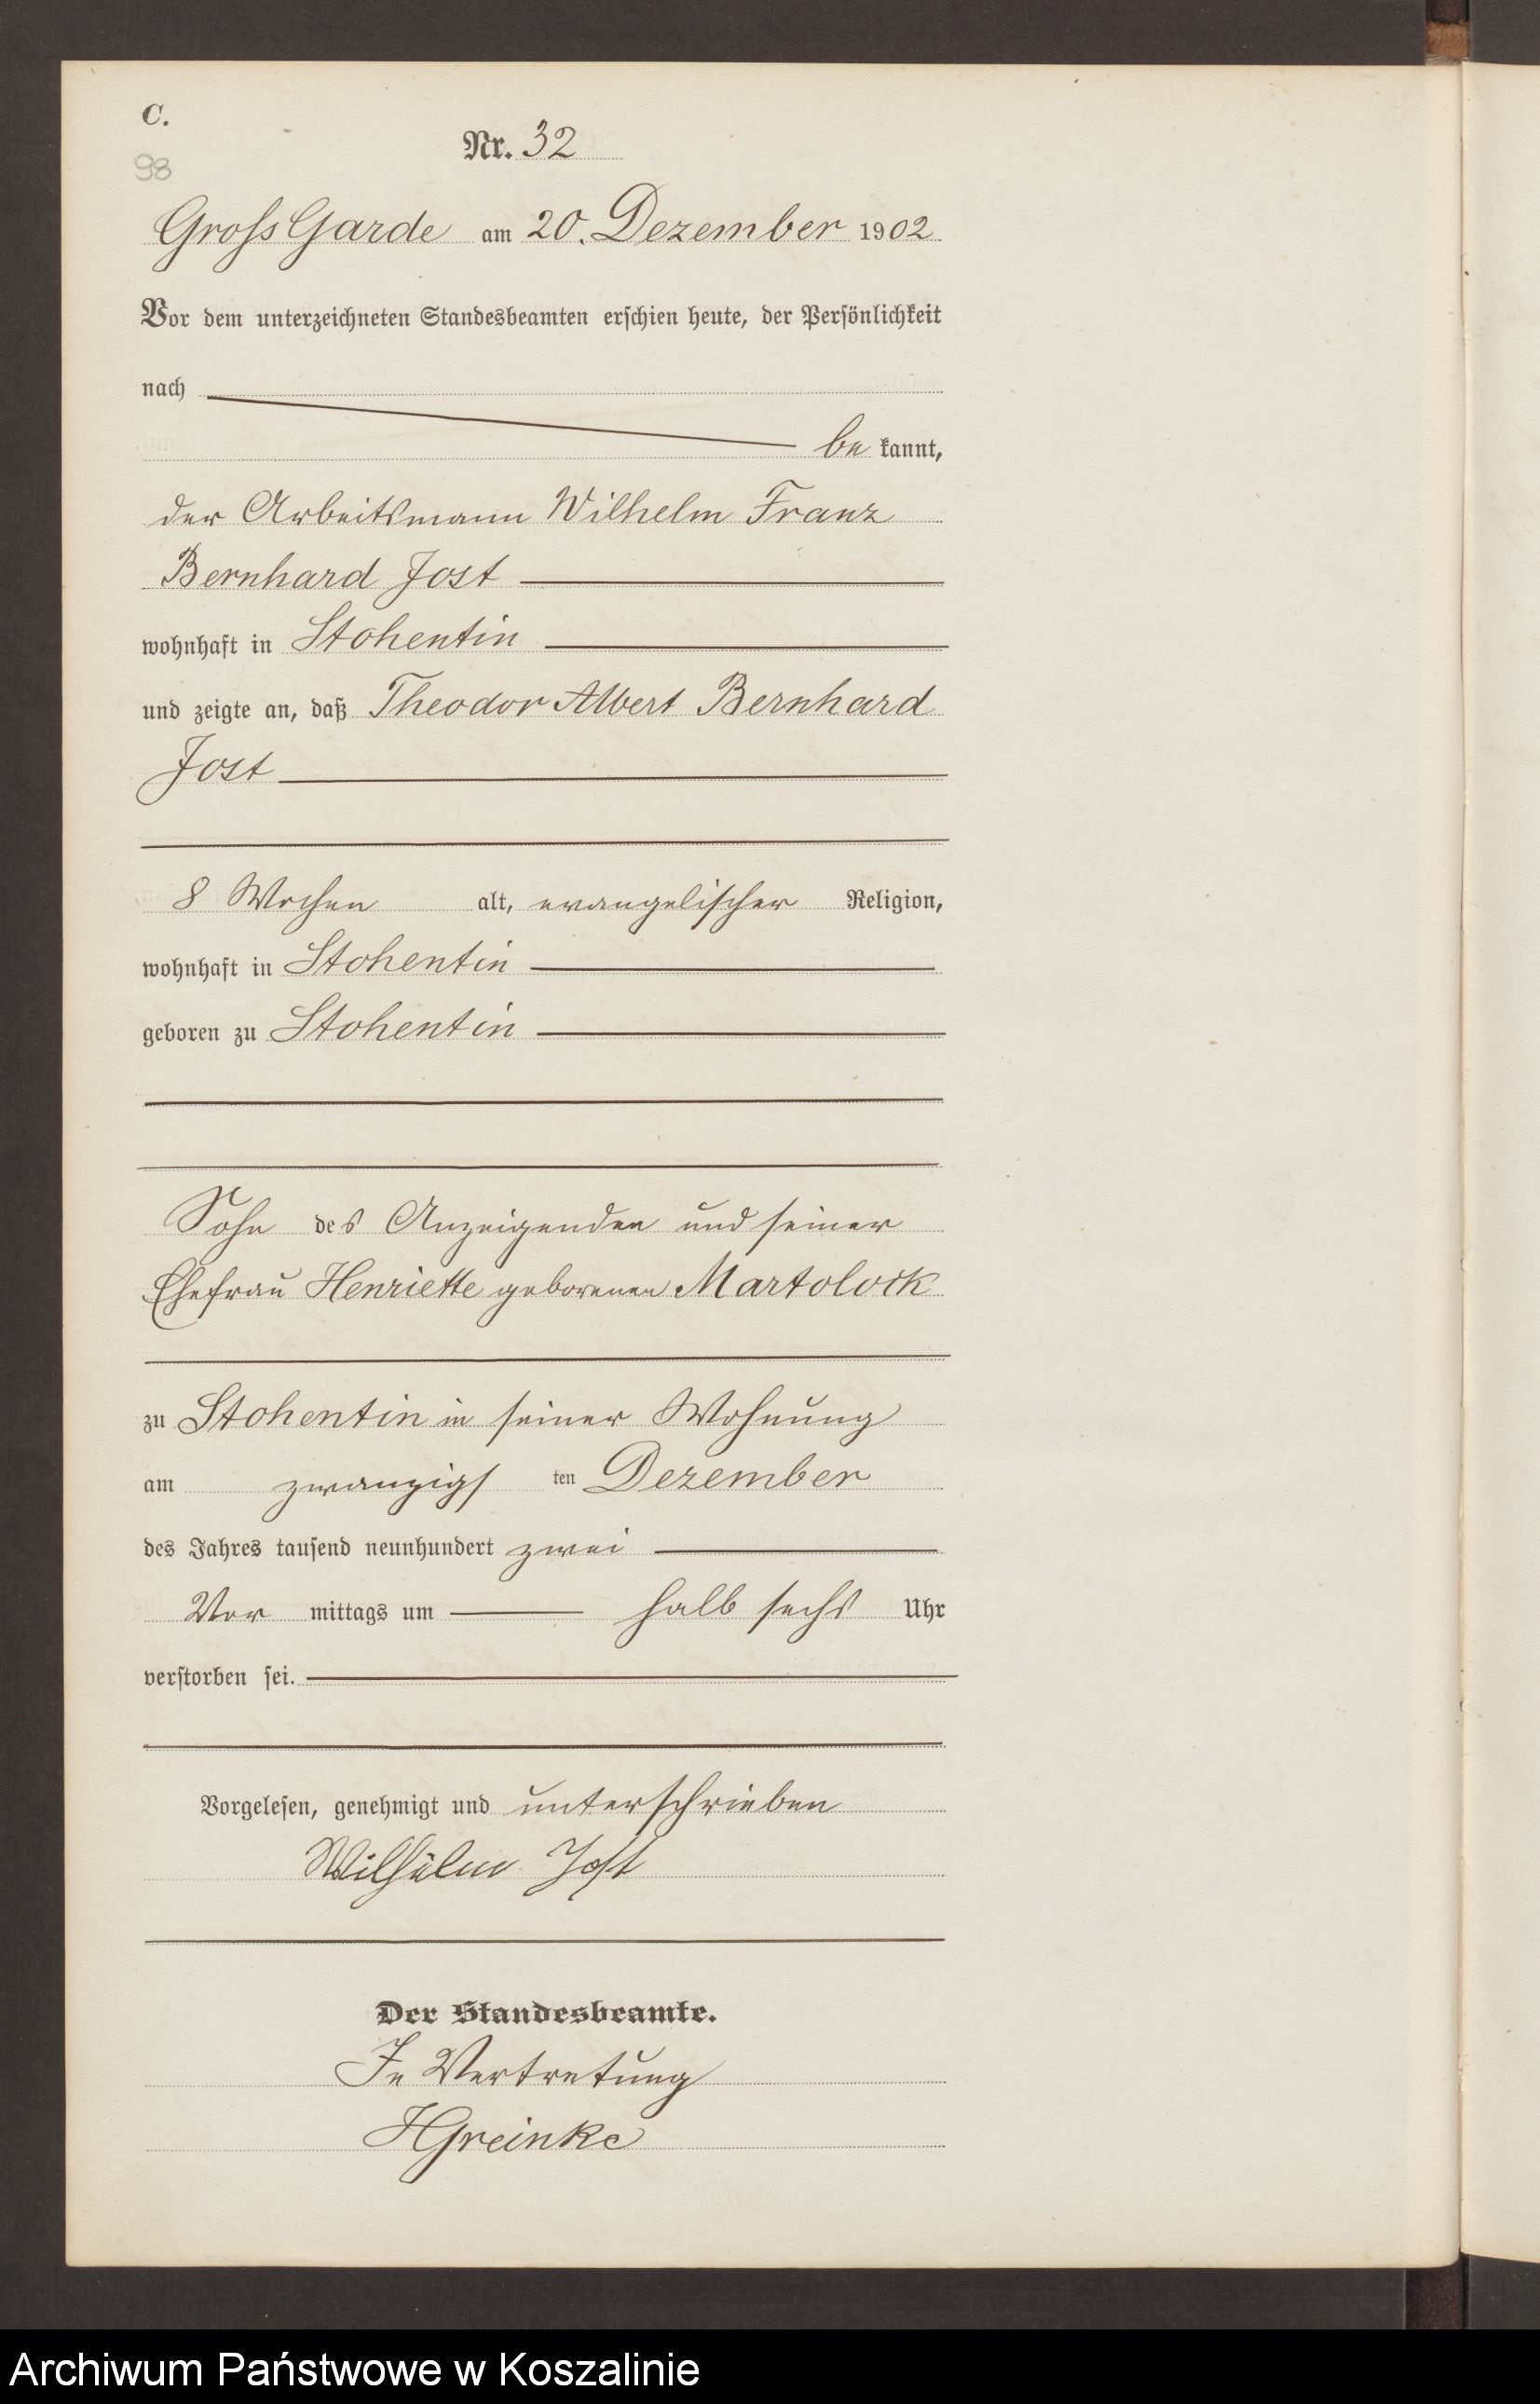 C.
98
Nr. 32
Gross Garde am 20. Dezember 1902
Vor dem unterzeichneten Standesbeamten erschien heute, der Persönlichkeit
nach
be kannt,
der Arbeitsmann Wilhelm Franz
Bernhard Jost
wohnhaft in Stohentin
und zeigte an, daß Theodor Albert Bernhard
Jost
8 Wochen alt, evangelischer Religion,
wohnhaft in Stohentin
geboren zu Stohentin
Sohn des Anzeigenden und seiner
Ehefrau Henriette geborenen Martolock
zu Stohentin in seiner Wohnung
am zwanzigs ten Dezember
des Jahres tausend neunhundert zwei
Vor mittags um halb sechs Uhr
verstorben sei.
Vorgelesen, genehmigt und unterschrieben
Wilhelm Jost
Der Standesbeamte.
In Vertretung
HGreinke
Archiwum Państwowe w Koszalinie